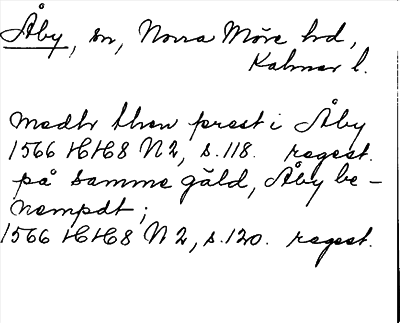 Åby, sn, Norra Möre hd,
Kalmar l.
medh then prest i Åby
1566 HH8 N2, s.118. regest.
på samme gäld, Åby be-
nempdt;
1566 HH8 N2, s.120. regest.